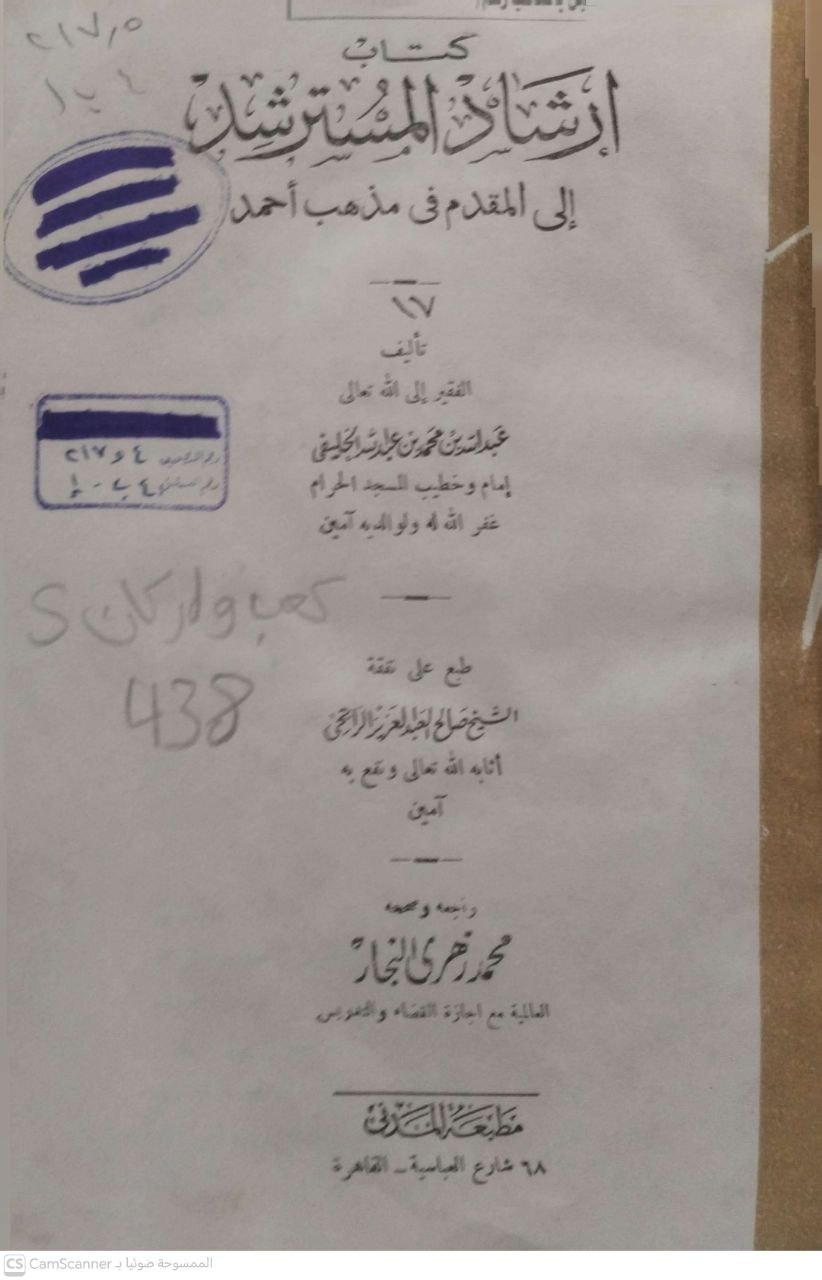 ٢١٧٫٥
كتاب
إرشاد المسترشد
إلى المقدم فى مذهب أحمد
١٧
تأليف
الفقير إلى الله تعالى
عبد الله بن محمد بن عبد الله الخليفى
إمام وخطيب المسجد الحرام
غفر الله له ولوالديه آمين
طبع على نفقة
الشيخ صالح العبد العزيز الراجحى
أثابه الله تعالى ونفع به
آمين
438
راجعه وصححه
محمد زهرى النجار
العالمية مع اجازة القضاء والتدريس
مطبعة المدنى
٦٨ شارع العباسية ــ القاهرة
CS CamScanner الممسوحة ضوئيا بـ